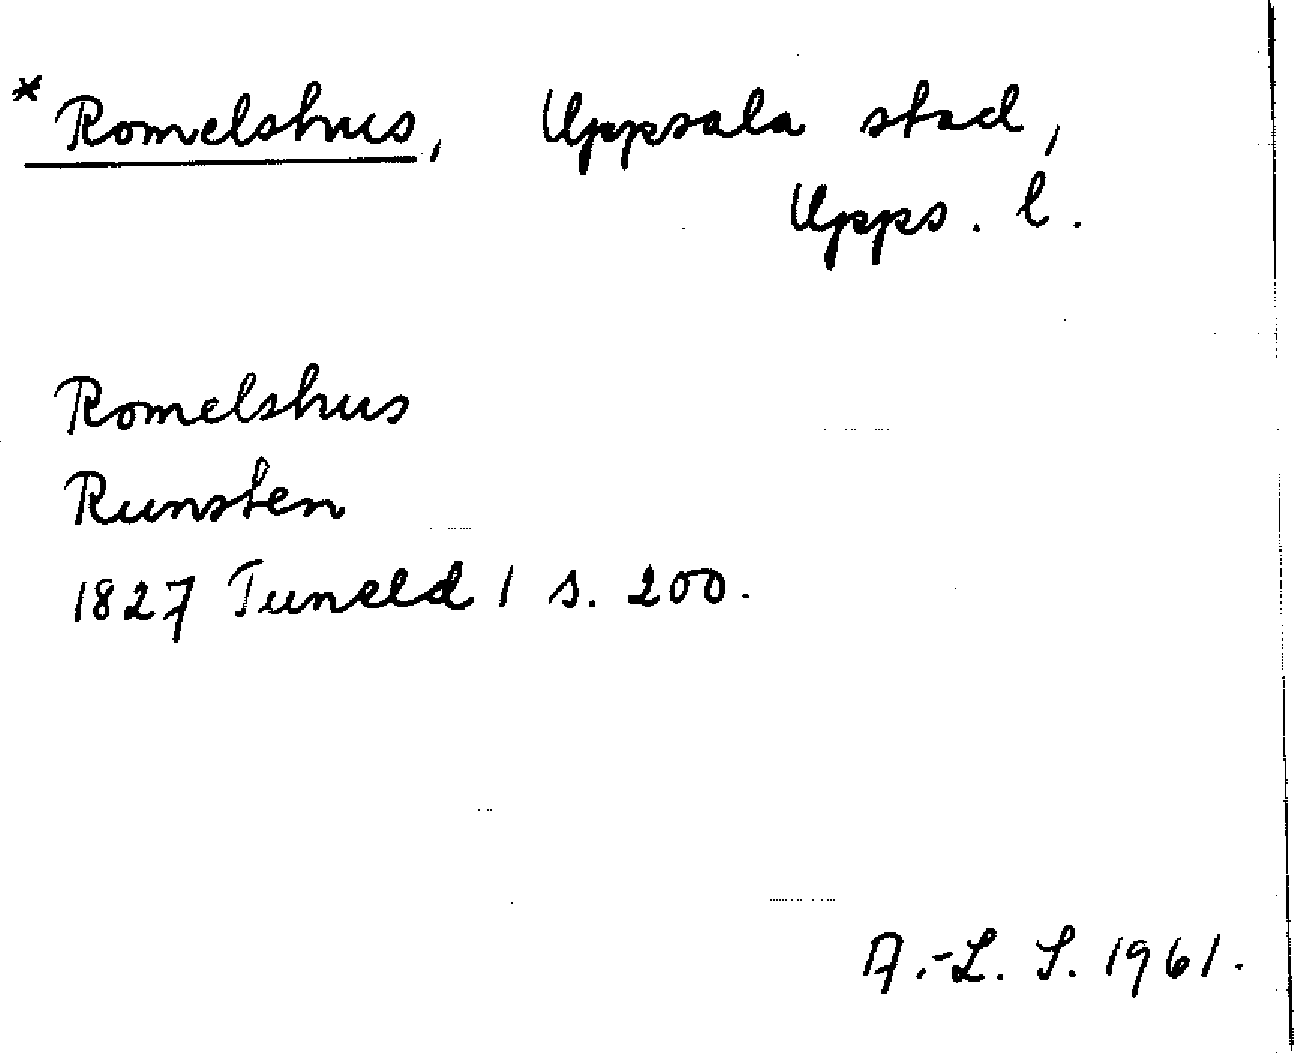 * Romelshus, Uppsala stad,
Upps. l.
Romelshus
Runsten
1827 Tuneld 1 s. 200.
A.-L. S. 1961.